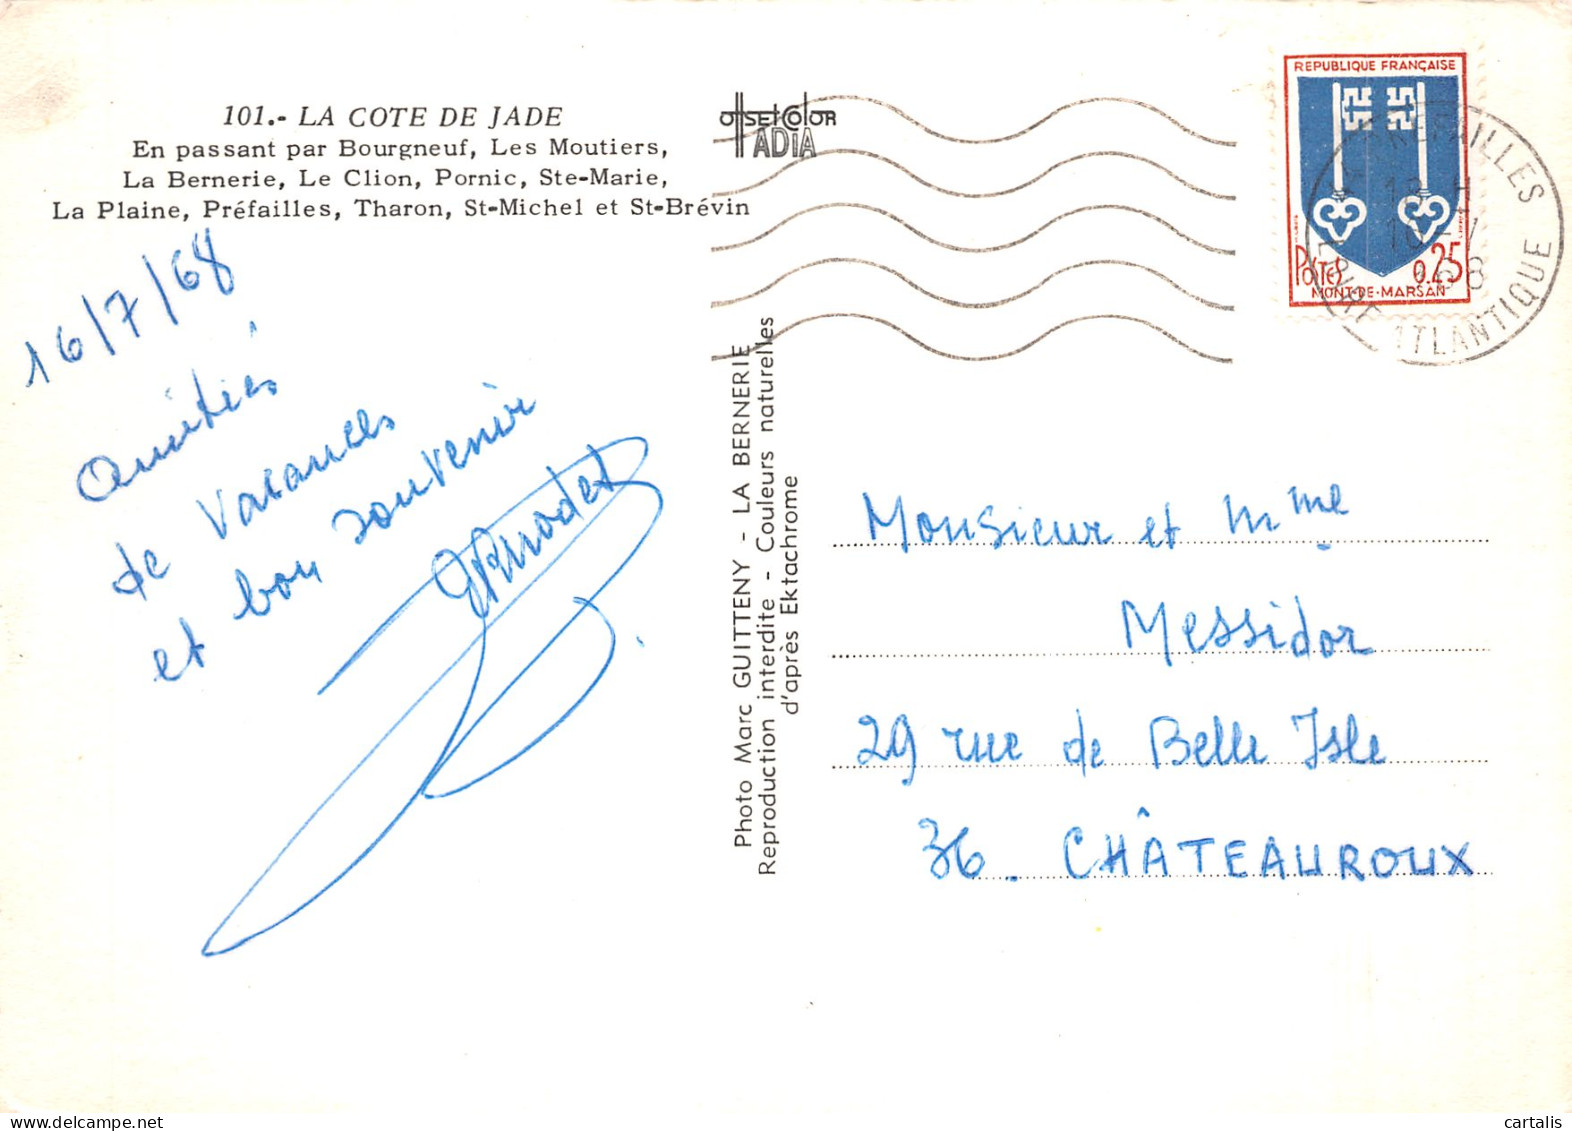 101.- LA COTE DE JADE
En passant par Bourgneuf, Les Moutiers,
La Bernerie, Le Clion, Pornic, Ste-Marie,
La Plaine, Préfailles, Tharon, St-Michel et St-Brévin
offset color
ADIA
REPUBLIQUE FRANÇAISE
POSTES
0.25
MONT-DE-MARSAN
PREFAILLES
LOIRE ATLANTIQUE
16/7/68
Amitiés
de vacances
et bon souvenir
Photo Marc GUITTENY - LA BERNERIE
Reproduction interdite - Couleurs naturelles
d'après Ektachrome
Monsieur et Mme
Messidor
29 rue de Belle Isle
36. CHÂTEAUROUX
cartalis